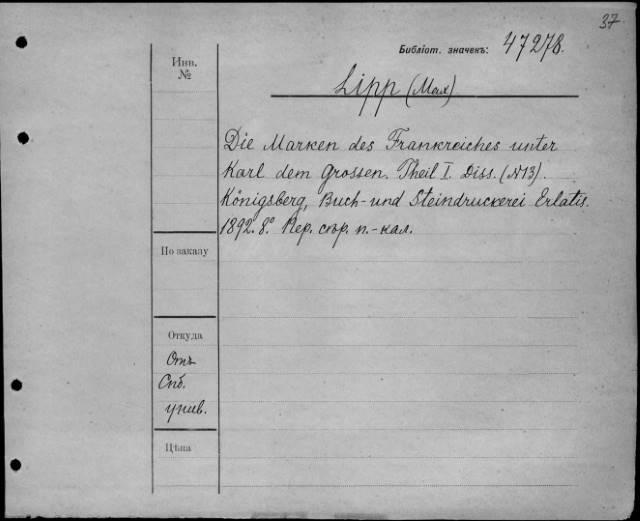 37
Библіот. значекъ: 47278.
Инв.
№
Lipp (Max)
Die Marken des Frankreiches unter
Karl dem Grossen. Theil I. Diss. (N13).
Königsberg, Buch- und Steindruckerei Erlatis.
1892. 8°. Пер. сѣр. п.-кал.
По заказу
Откуда
Отъ
Спб.
унив.
Цѣна